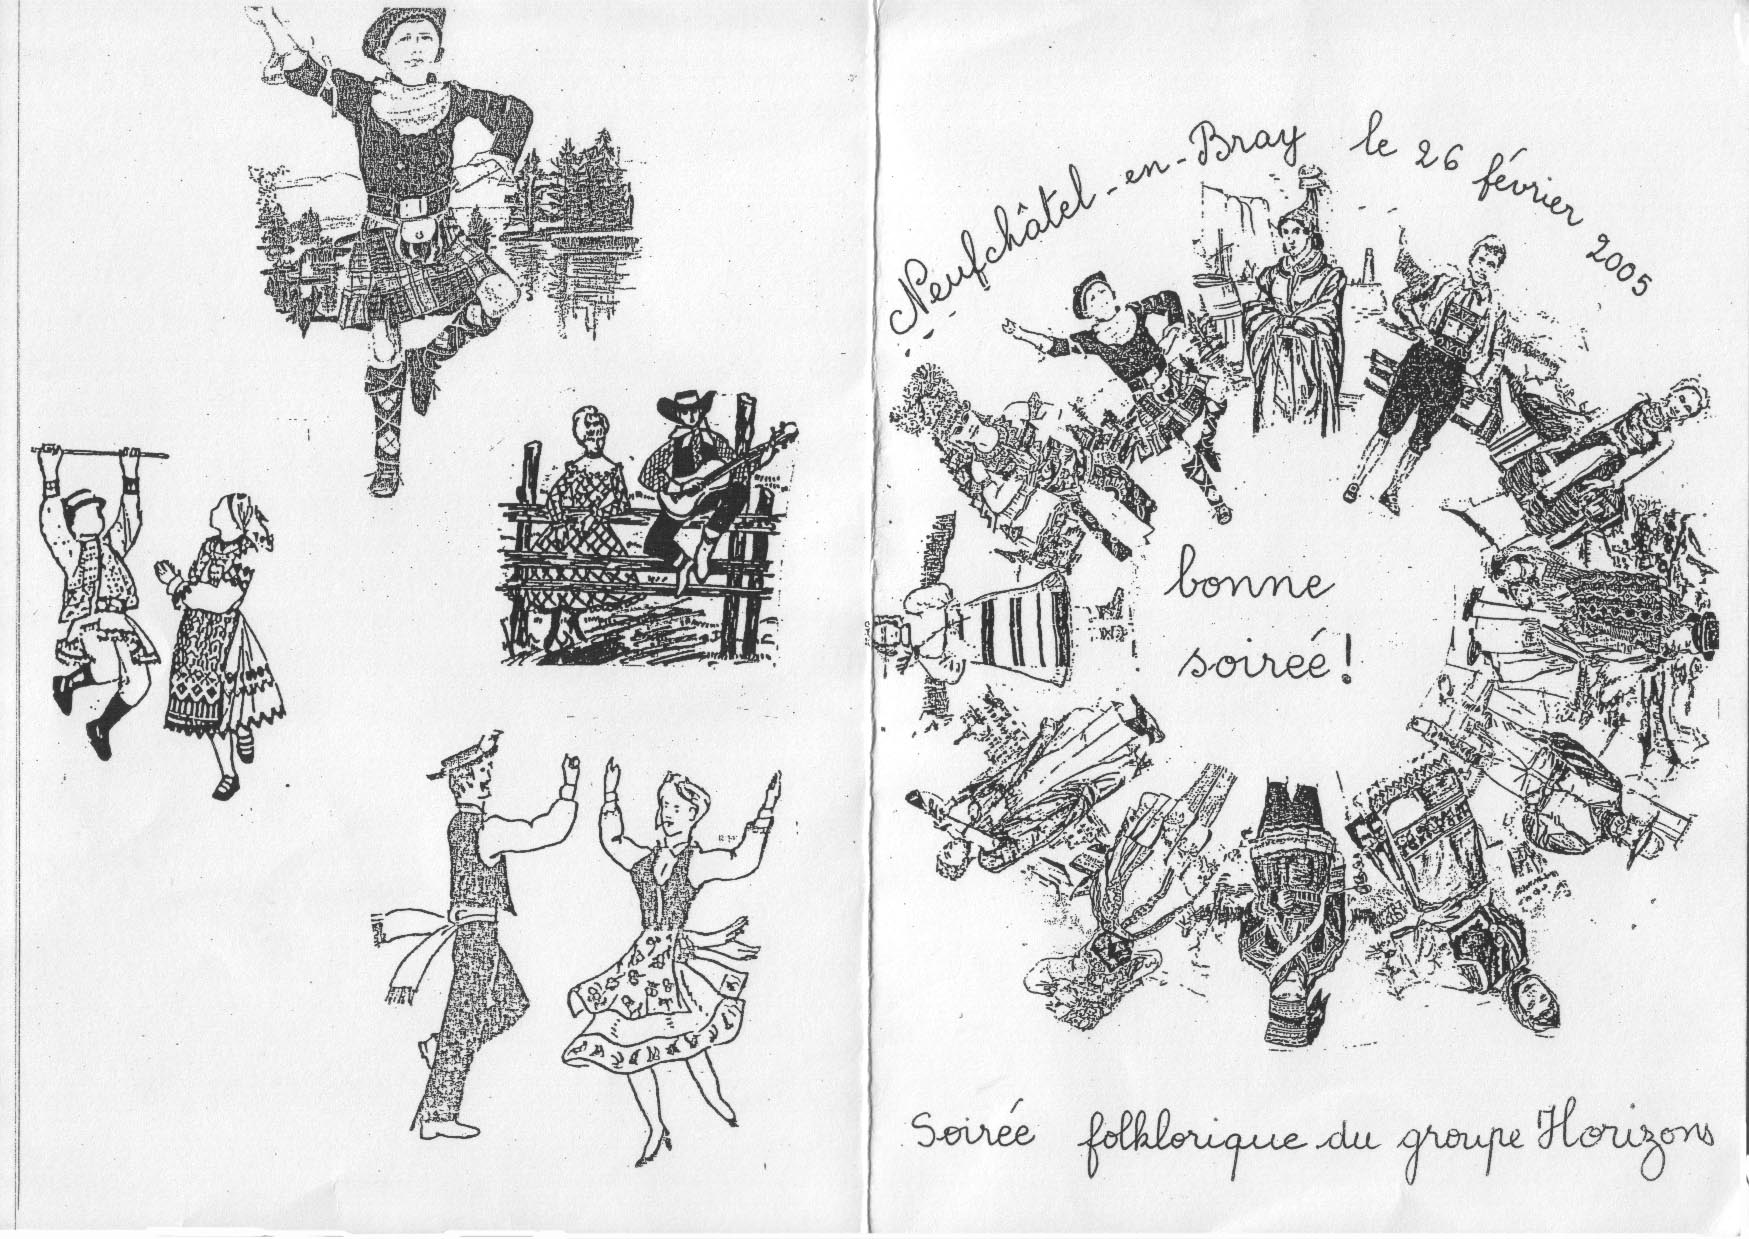 Neufchâtel-en-Bray le 26 février 2005
bonne
soirée!
Soirée folklorique du groupe Horizons